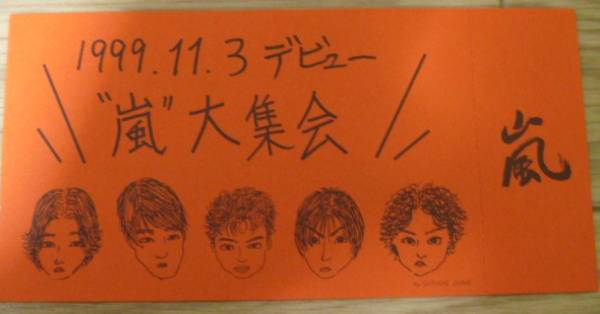 1999.11.3 デビュー
"嵐"大集会
嵐